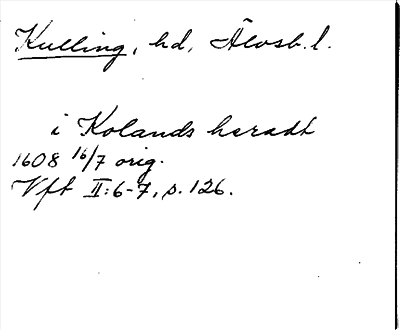 Kulling, hd, Älvsb. l.
i Kolands haradt
1608 16/7 orig.
Vft II:6-7, s. 126.